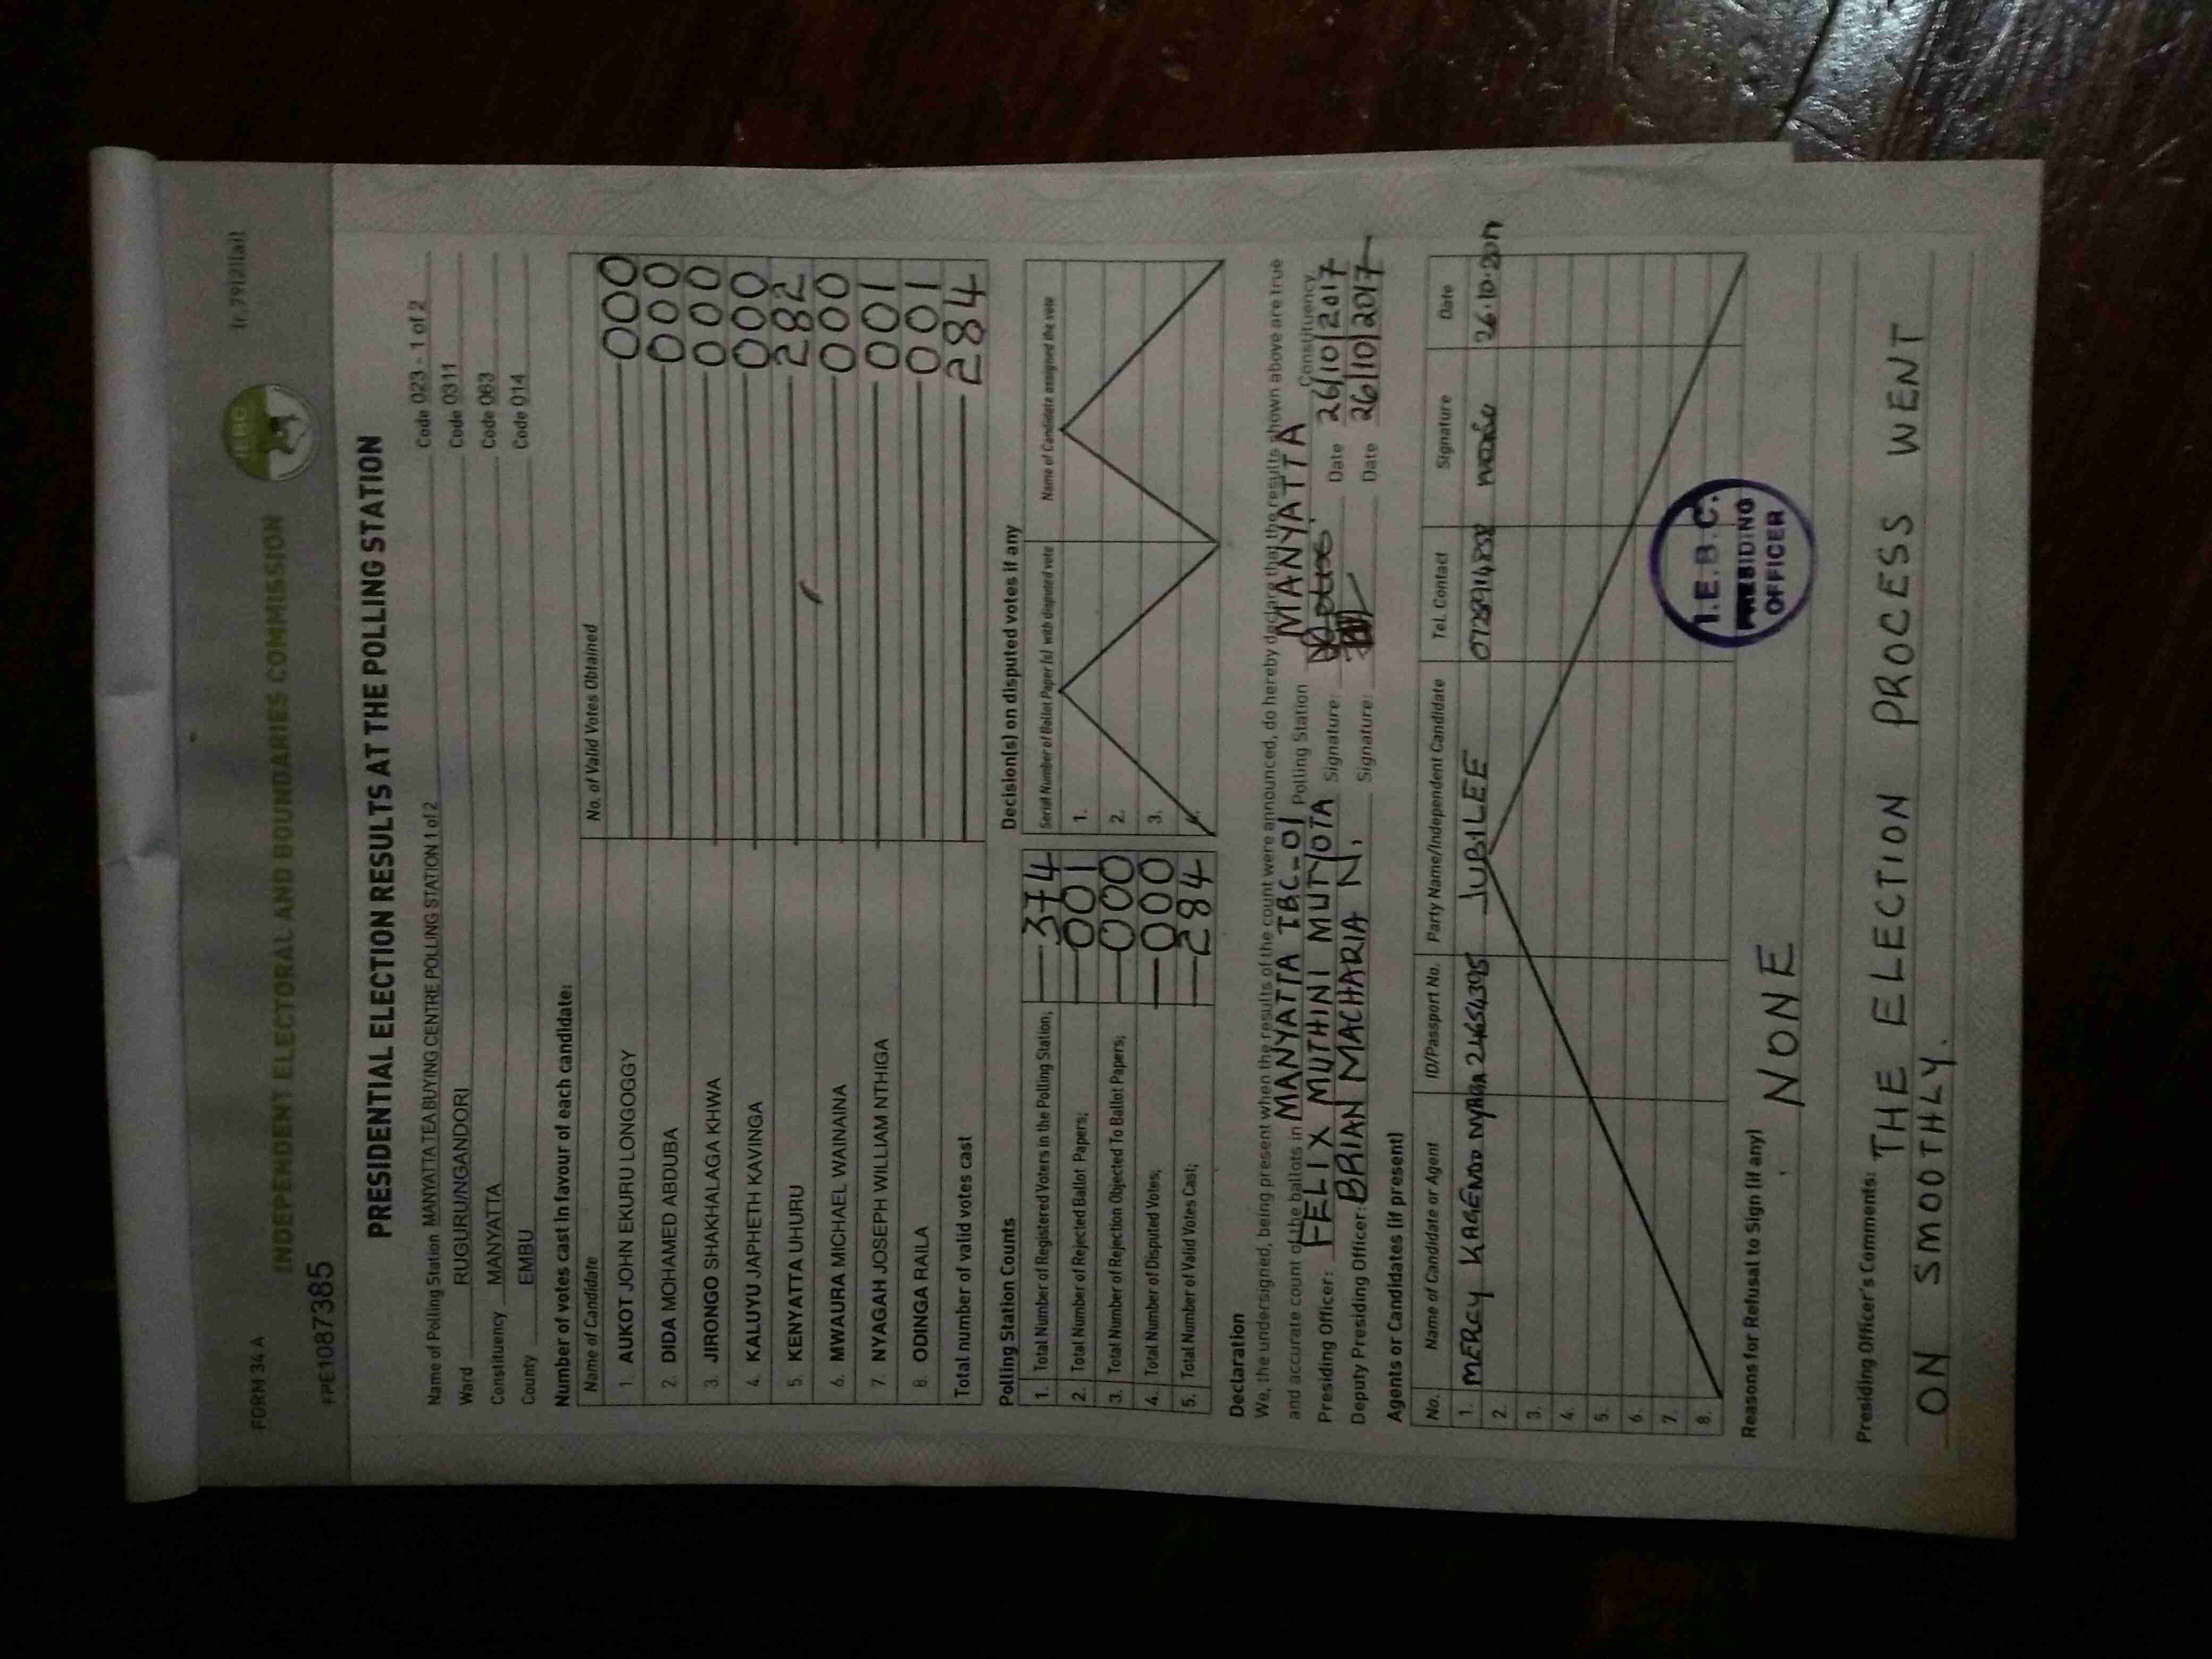 FORM 34 A
(r.79(2)(a))
INDEPENDENT ELECTORAL AND BOUNDARIES COMMISSION
IEBC
FPE1087385
PRESIDENTIAL ELECTION RESULTS AT THE POLLING STATION
Name of Polling Station MANYATTA TEA BUYING CENTRE POLLING STATION 1 of 2 Code 023 - 1 of 2
Ward RUGURU/NGANDORI Code 0311
Constituency MANYATTA Code 063
County EMBU Code 014
Number of votes cast in favour of each candidate:
Name of Candidate No. of Valid Votes Obtained
1. AUKOT JOHN EKURU LONGOGGY 000
2. DIDA MOHAMED ABDUBA 000
3. JIRONGO SHAKHALAGA KHWA 000
4. KALUYU JAPHETH KAVINGA 000
5. KENYATTA UHURU 282
6. MWAURA MICHAEL WAINAINA 000
7. NYAGAH JOSEPH WILLIAM NTHIGA 001
8. ODINGA RAILA 001
Total number of valid votes cast 284
Polling Station Counts
1. Total Number of Registered Voters in the Polling Station; 374
2. Total Number of Rejected Ballot Papers; 001
3. Total Number of Rejection Objected To Ballot Papers; 000
4. Total Number of Disputed Votes; 000
5. Total Number of Valid Votes Cast; 284
Decision(s) on disputed votes if any
Serial Number of Ballot Paper(s) with disputed vote Name of Candidate assigned the vote
1.
2.
3.
Declaration
We, the undersigned, being present when the results of the count were announced, do hereby declare that the results shown above are true
and accurate count of the ballots in MANYATTA TBC-01 Polling Station MANYATTA Constituency
Presiding Officer: FELIX MUTHINI MUTYOTA Signature: Date 26/10/2017
Deputy Presiding Officer: BRIAN MACHARIA N. Signature: Date 26/10/2017
Agents or Candidates (if present)
No. Name of Candidate or Agent ID/Passport No. Party Name/Independent Candidate Tel. Contact Signature Date
1. MERCY KAGENDO 24654395 JUBILEE 26.10.2017
2.
3.
4.
5.
6.
7.
8.
I.E.B.C.
PRESIDING
OFFICER
Reasons for Refusal to Sign (if any)
NONE
Presiding Officer's Comments: THE ELECTION PROCESS WENT
ON SMOOTHLY.